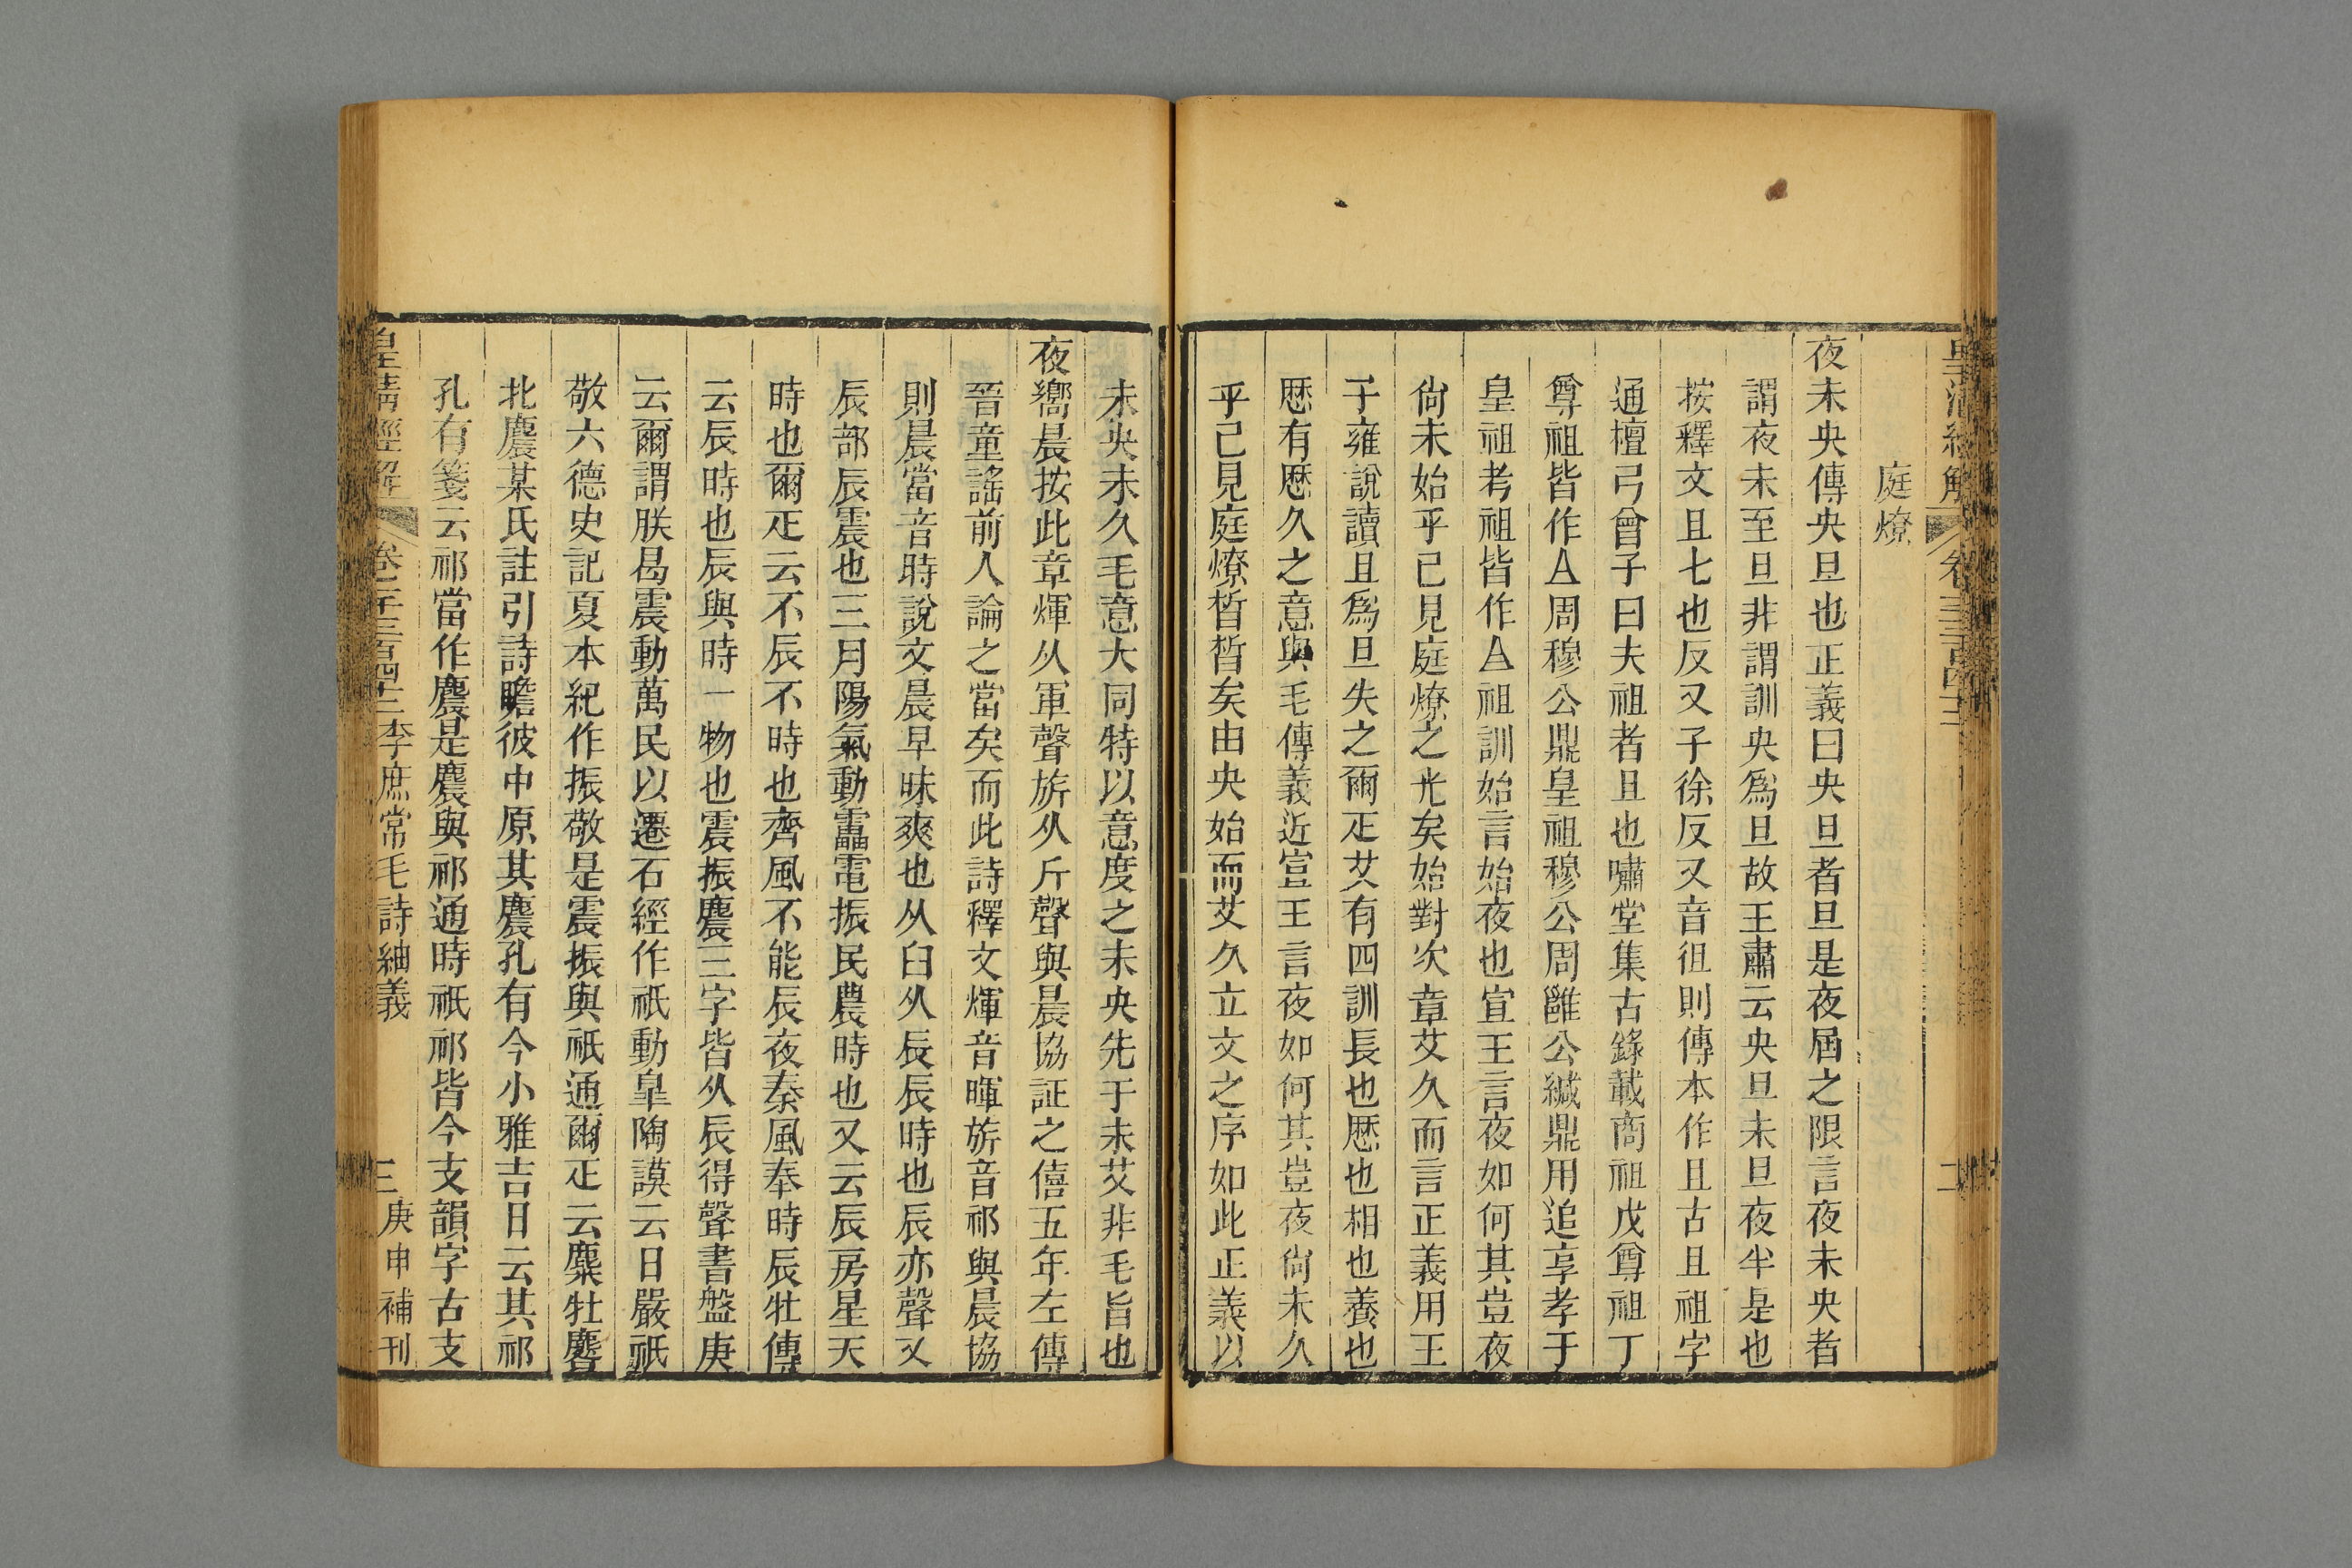 庭燎
夜未央傳央旦也正義曰央旦者旦是夜屆之限言夜未央者
謂夜未至旦非謂訓央爲旦故王肅云央旦未旦夜半是也
按釋文且七也反又子徐反又音徂則傳本作且古且祖字
通檀弓曾子曰夫祖者且也嘯堂集古錄載商祖戊尊祖丁
尊祖皆作A周穆公鼎皇祖穆公周雝公緘鼎用追享孝于
皇祖考祖皆作A祖訓始言始夜也宣王言夜如何其豈夜
尙未始乎已見庭燎之光矣始對次章艾久而言正義用王
子雍說讀且爲旦失之爾疋艾有四訓長也歷也相也養也
歷有歷久之意與毛傳義近宣王言夜如何其豈夜尙未久
乎已見庭燎晳晳矣由央始而艾久立文之序如此正義以
未央未久毛意大同特以意度之未央先于未艾非毛旨也
夜嚮晨按此章煇从軍聲旂从斤聲與晨協証之僖五年左傳
晉童謠前人論之當矣而此詩釋文煇音暉旂音祁與晨協
則晨當音時說文晨早昧爽也从臼从辰辰時也辰亦聲又
辰部辰震也三月陽氣動靁電振民農時也又云辰房星天
時也爾疋云不辰不時也齊風不能辰夜秦風奉時辰牡傳
云辰時也辰與時一物也震振麎三字皆从辰得聲書盤庚
云爾謂朕曷震動萬民以遷石經作祇動皐陶謨云日嚴祇
敬六德史記夏本紀作振敬是震振與祇通爾疋云麋牡麔
北麎某氏註引詩瞻彼中原其麎孔有今小雅吉日云其祁
孔有箋云祁當作麎是麎與祁通時祇祁皆今支韻字古支
皇清經解 卷千三百四十二 李庶常毛詩紬義 三 庚申補刊